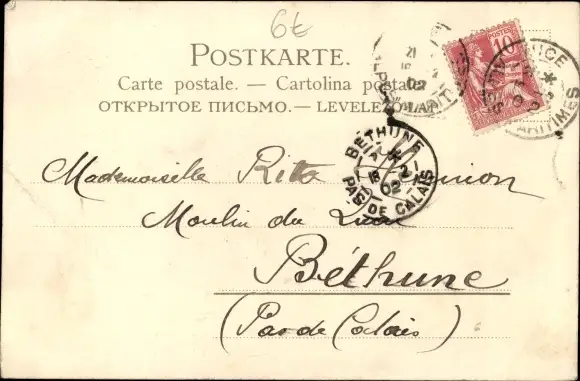 6€
POSTKARTE.
Carte postale. — Cartolina postale
ОТКРЫТОЕ ПИСЬМО. — LEVELEZŐ-LAP
10
POSTES
NICE
ALPES MARITIMES
21
02
BÉTHUNE
21
02
PAS DE CALAIS
Mademoiselle Rita
Moulin du
Béthune
(Pas de Calais)